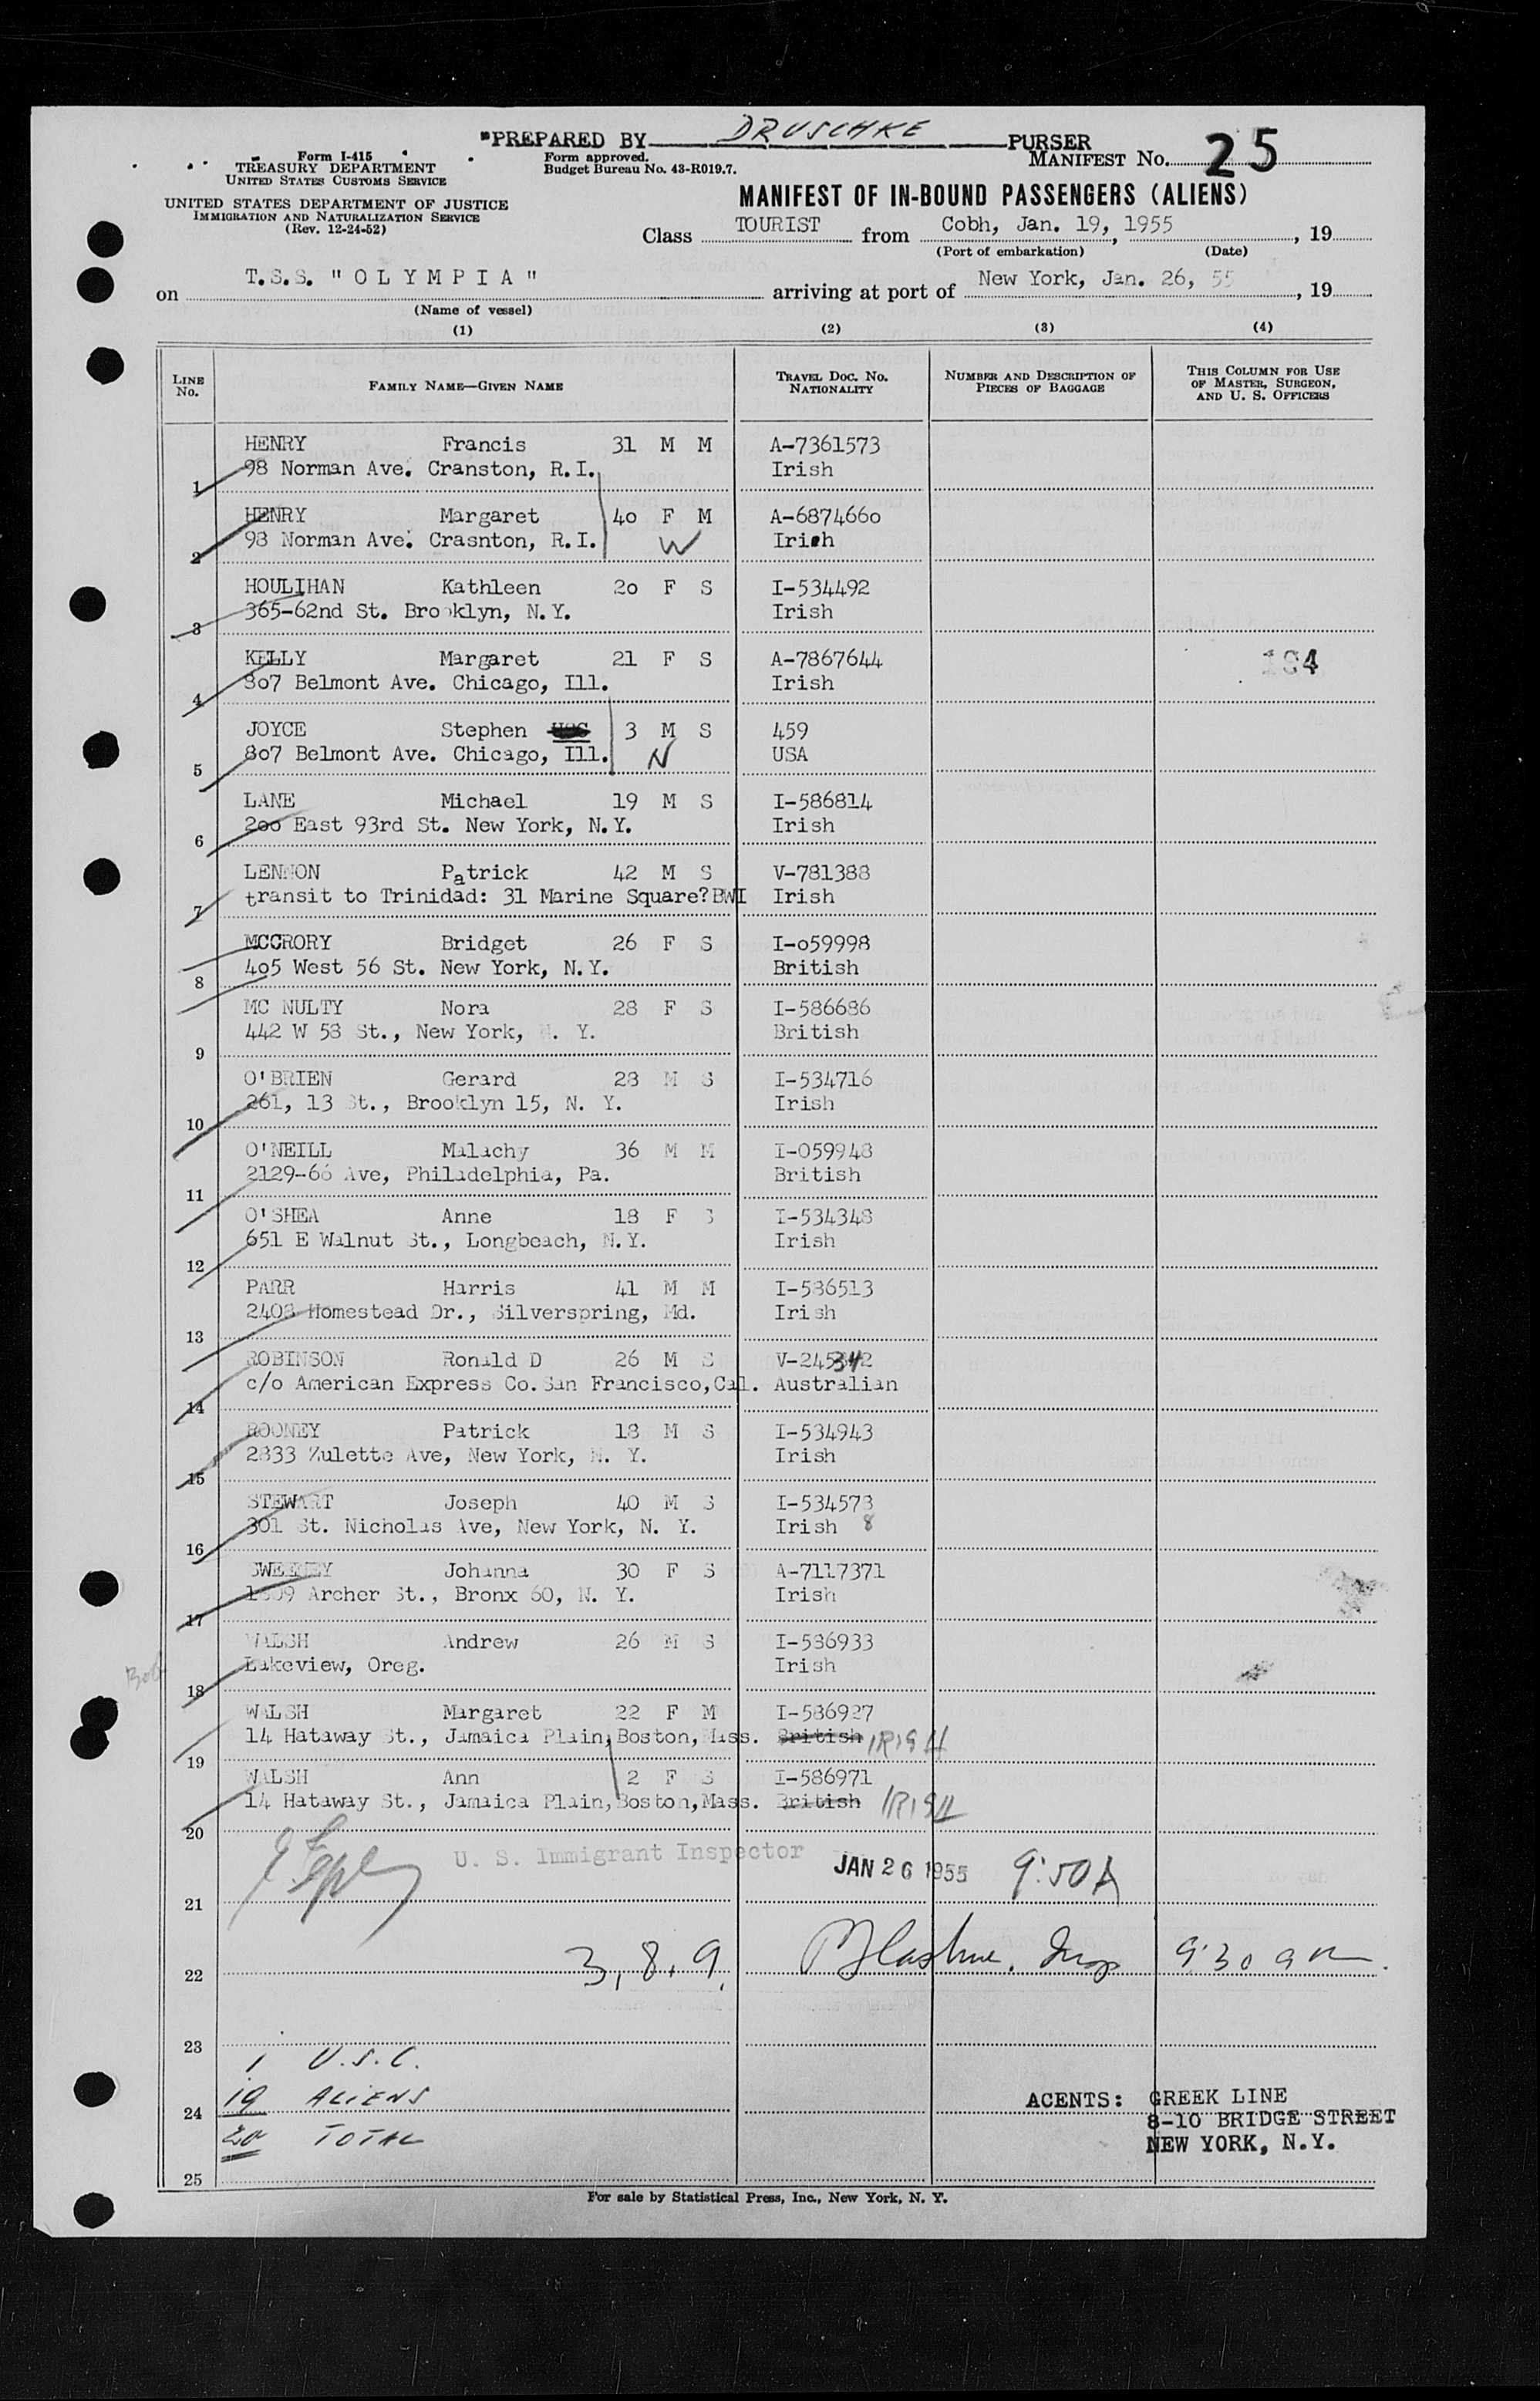 "PREPARED BY DRUSCHKE PURSER
Form I-415
TREASURY DEPARTMENT
UNITED STATES CUSTOMS SERVICE
Form approved.
Budget Bureau No. 43-R019.7.
MANIFEST No. 25
UNITED STATES DEPARTMENT OF JUSTICE
IMMIGRATION AND NATURALIZATION SERVICE
(Rev. 12-24-52)
MANIFEST OF IN-BOUND PASSENGERS (ALIENS)
Class TOURIST from Cobh, Jan. 19, 1955, 19
(Port of embarkation) (Date)
on T.S.S. "OLYMPIA" arriving at port of New York, Jan. 26, 55, 19
(Name of vessel)
(1) (2) (3) (4)
LINE No. FAMILY NAME—GIVEN NAME TRAVEL DOC. No. NATIONALITY NUMBER AND DESCRIPTION OF PIECES OF BAGGAGE THIS COLUMN FOR USE OF MASTER, SURGEON, AND U. S. OFFICERS
HENRY Francis 31 M M A-7361573
1 98 Norman Ave. Cranston, R.I. Irish
HENRY Margaret 40 F M A-6874660
2 98 Norman Ave. Crasnton, R.I. W Irish
HOULIHAN Kathleen 20 F S I-534492
3 365-62nd St. Brooklyn, N.Y. Irish
KELLY Margaret 21 F S A-7867644 184
4 807 Belmont Ave. Chicago, Ill. Irish
JOYCE Stephen 3 M S 459
5 807 Belmont Ave. Chicago, Ill. N USA
LANE Michael 19 M S I-586814
6 200 East 93rd St. New York, N.Y. Irish
LENNON Patrick 42 M S V-781388
7 transit to Trinidad: 31 Marine Square?BWI Irish
MCCRORY Bridget 26 F S I-059998
8 405 West 56 St. New York, N.Y. British
MC NULTY Nora 28 F S I-586686
9 442 W 58 St., New York, N. Y. British
O'BRIEN Gerard 28 M S I-534716
10 261, 13 St., Brooklyn 15, N. Y. Irish
O'NEILL Malachy 36 M M I-059948
11 2129-66 Ave, Philadelphia, Pa. British
O'SHEA Anne 18 F S I-534348
12 651 E Walnut St., Longbeach, N.Y. Irish
PARR Harris 41 M M I-586513
13 2408 Homestead Dr., Silverspring, Md. Irish
ROBINSON Ronald D 26 M S V-245342
14 c/o American Express Co. San Francisco, Cal. Australian
ROONEY Patrick 18 M S I-534943
15 2833 Zulette Ave, New York, N. Y. Irish
STEWART Joseph 40 M S I-534573
16 301 St. Nicholas Ave, New York, N. Y. Irish 8
SWEENEY Johanna 30 F S A-7117371
17 Archer St., Bronx 60, N. Y. Irish
WALSH Andrew 26 M S I-586933
18 Lakeview, Oreg. Irish
WALSH Margaret 22 F M I-586927
19 14 Hataway St., Jamaica Plain, Boston, Mass. British IRISH
WALSH Ann 2 F S I-586971
20 14 Hataway St., Jamaica Plain, Boston, Mass. British IRISH
U. S. Immigrant Inspector JAN 26 1955 9:50A
21
22 3, 8, 9. Insp 9:30 am.
23 1 U.S.C.
24 19 ALIENS
20 TOTAL
25
ACENTS: GREEK LINE
8-10 BRIDGE STREET
NEW YORK, N.Y.
For sale by Statistical Press, Inc., New York, N. Y.